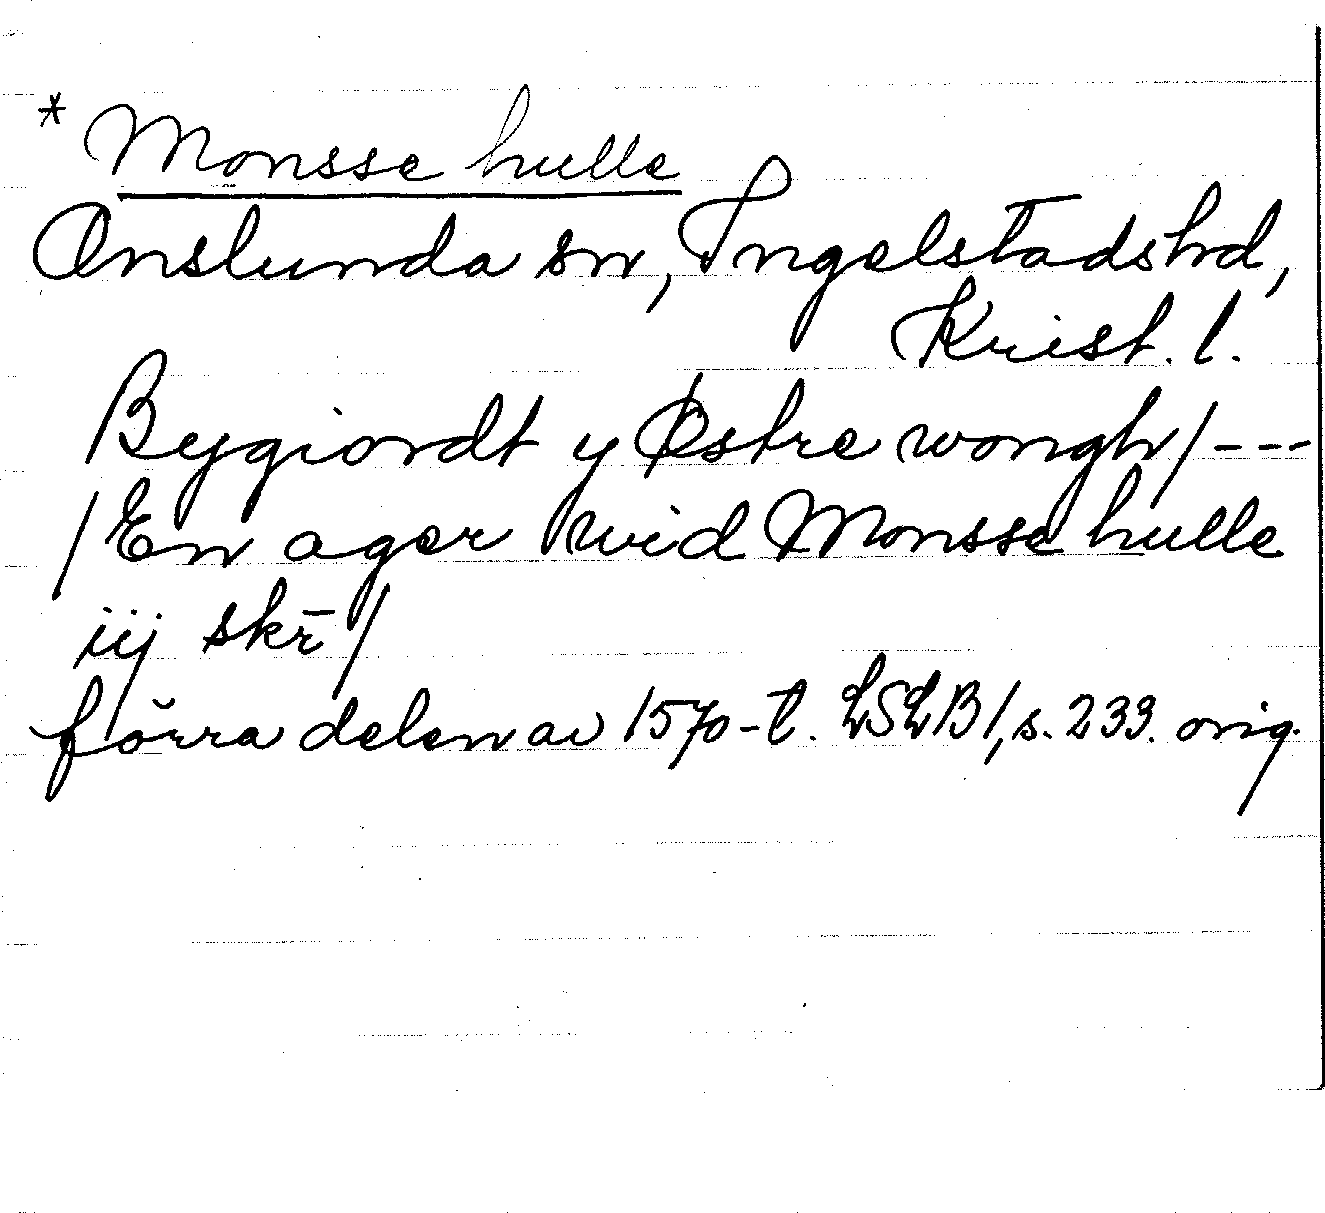 * Monsse hulle
Onslunda sn, Ingelstads hd,
Krist. l.
Bygiordt y Østre wongh/---
/En ager wid Monsse hulle
iij skr̄/
förra delen av 1570-t. LSLB1, s. 233. orig.